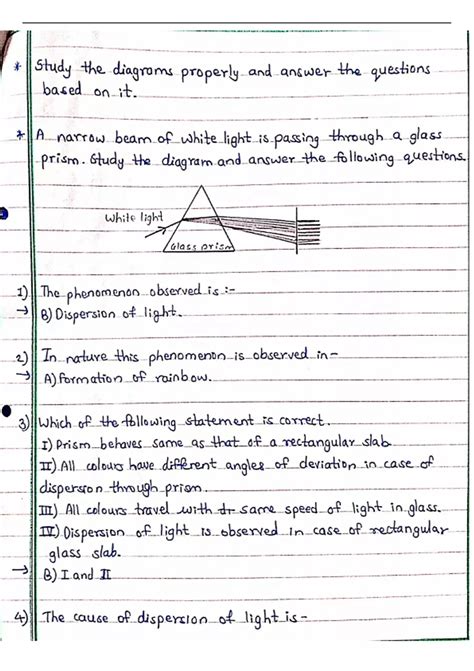 * Study the diagrams properly and answer the questions
based on it.
* A narrow beam of white light is passing through a glass
prism. Study the diagram and answer the following questions.
White light
Glass prism
1) The phenomenon observed is :-
→ B) Dispersion of light.
2) In nature this phenomenon is observed in-
→ A) Formation of rainbow.
3) Which of the following statement is correct.
I) Prism behaves same as that of a rectangular slab.
II) All colours have different angles of deviation in case of
dispersion through prism.
III) All colours travel with same speed of light in glass.
IV) Dispersion of light is observed in case of rectangular
glass slab.
→ B) I and II
4) The cause of dispersion of light is -